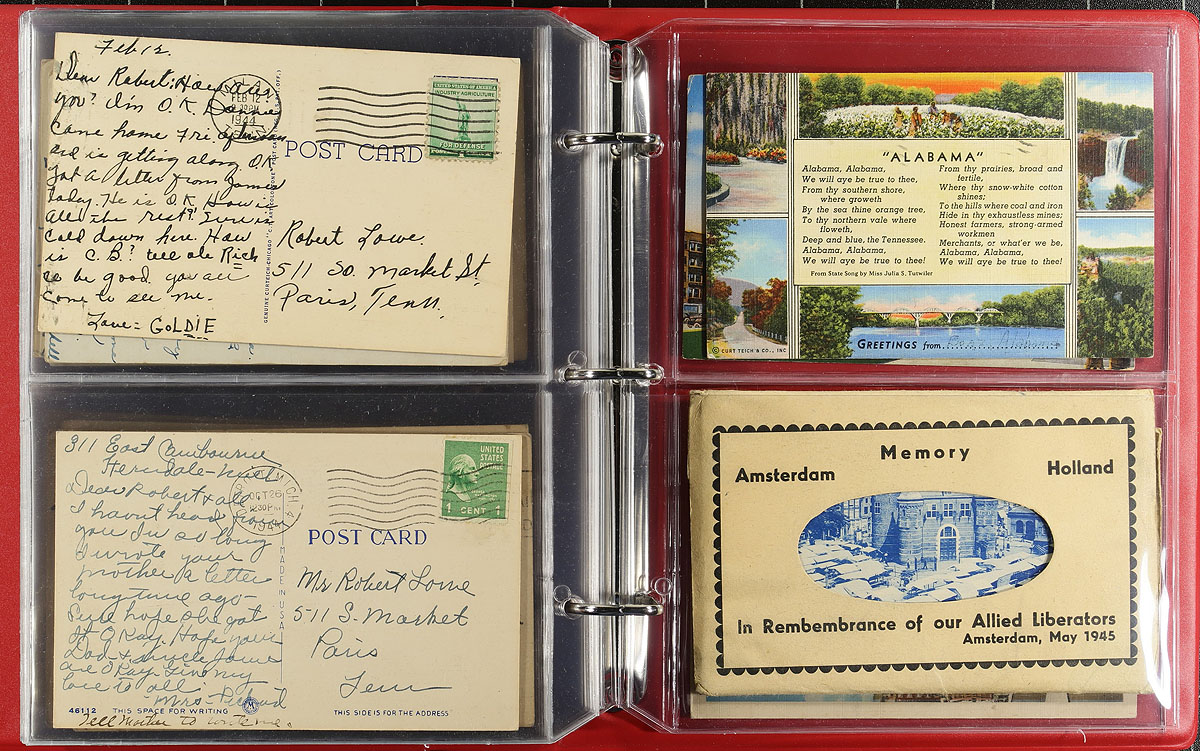 Feb 12.
Dear Robert: How are
you? I'm O.K.
came home Fri afternoon
and is getting along O.K
Got a letter from James
today. He is O.K How is
all the rest? Sure is
cold down here. How
is C.B.? tell ole Rich
to be good. you all
come to see me.
Love = GOLDIE
FEB 12
1944
UNITED STATES OF AMERICA
INDUSTRY AGRICULTURE
FOR DEFENSE
POST CARD
GENUINE CURTEICH-CHICAGO
Robert Lowe.
511 So. Market St.
Paris, Tenn.
"ALABAMA"
Alabama, Alabama,
We will aye be true to thee,
From thy southern shore,
where groweth
By the sea thine orange tree,
To thy northern vale where
floweth,
Deep and blue, the Tennessee.
Alabama, Alabama,
We will aye be true to thee!
From thy prairies, broad and
fertile,
Where thy snow-white cotton
shines;
To the hills where coal and iron
Hide in thy exhaustless mines;
Honest farmers, strong-armed
workmen
Merchants, or what'er we be,
Alabama, Alabama,
We will aye be true to thee!
From State Song by Miss Julia S. Tutwiler
© CURT TEICH & CO., INC
GREETINGS from
311 East
Dear Robert & all
I havnt head from
you In so long
I wrote your
mother a letter
long time ago-
Sure hope she got
It O Kay. Hope your
Dad & uncle
are O Kay. Give my
love to all
Mrs
Tell Mother to write me.
OCT 26
12 30 PM
1944
MICH
UNITED
STATES
POSTAGE
1 CENT 1
POST CARD
MADE IN U.S.A.
Mr Robert Lowe
511 S. Market
Paris
Tenn
46112 THIS SPACE FOR WRITING
THIS SIDE IS FOR THE ADDRESS
Memory
Amsterdam
Holland
In Rembembrance of our Allied Liberators
Amsterdam, May 1945